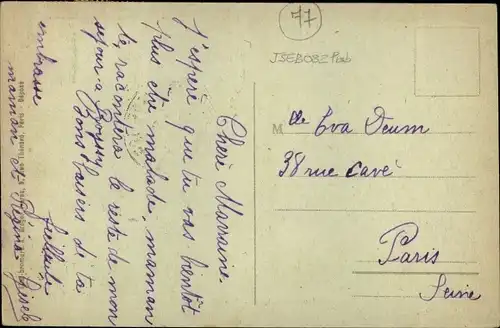 77
JSEBOBZ
Chère Marraine
J'espère que tu vas bientôt
plus être malade, maman
te racontera le reste de mon
séjour a
Bons baisers de ta
filleule
embrasse
maman et
M
elle Eva Deum
38 rue Cavé
Paris
Seine